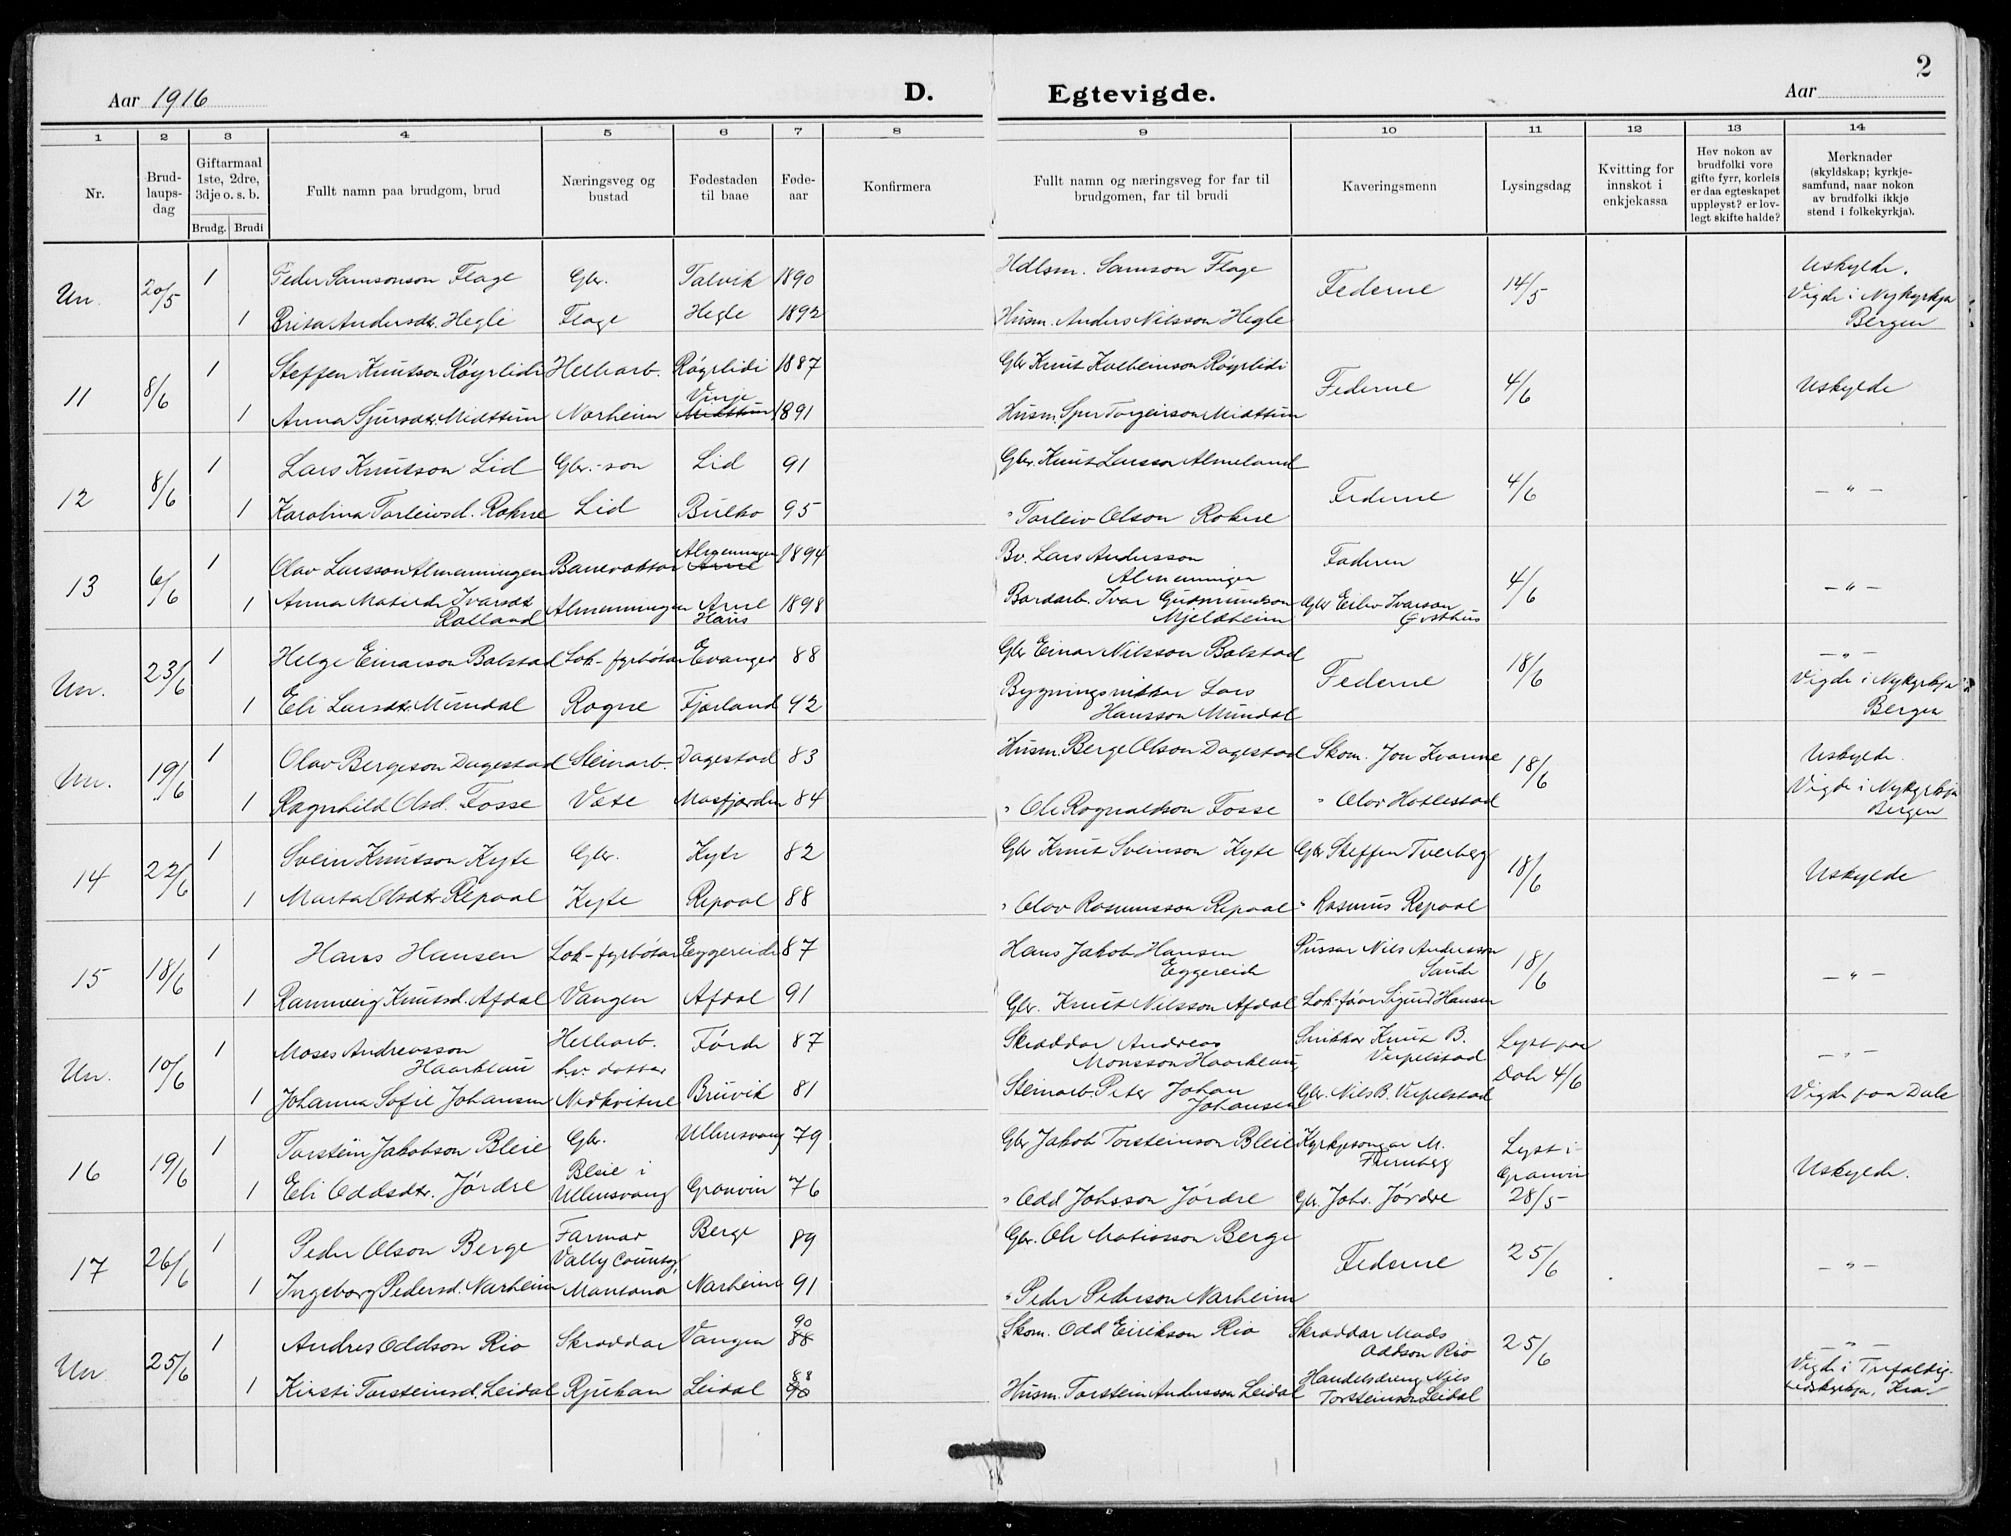 2
Aar 1916 D. Egtevigde. Aar
1 2 3 4 5 6 7 8 9 10 11 12 13 14
Nr.
Brud-
laups-
dag
Giftarmaal
1ste, 2dre,
3dje o. s. b.
Brudg. Brudi
Fullt namn paa brudgom, brud
Næringsveg og
bustad
Fødestaden
til baae
Føde-
aar
Konfirmera
Fullt namn og næringsveg for far til
brudgomen, far til brudi
Kaveringsmenn
Lysingsdag
Kvitting for
innskot i
enkjekassa
Hev nokon av
brudfolki vore
gifte fyrr, korleis
er daa egteskapet
uppløyst? er lov-
legt skifte halde?
Merknader
(skyldskap; kyrkje-
samfund, naar nokon
av brudfolki ikkje
stend i folkekyrkja).
Un. 20/5 1 Peder Samsonson Flage Gbr. Talvik 1890 Hdlsm. Samson Flage Federne 14/5 Uskylde.
1 Brita Andersdtr. Hegle Flage Hegle 1892 Husm. Anders Nilsson Hegle Vigde i Nykyrkja
Bergen
11 8/6 1 Steffen Knutson Røyrlidi Helharb. Røyrlidi 1887 Gbr Knut Kolbeinson Røyrlidi Federne 4/6 Uskylde
Vinje
1 Anna Sjursdtr. Midttun Norheim Midttun 1891 Husm. Sjur Torgeirson Midttun
12 8/6 1 Lars Knutson Lid Gbr.-son Lid 91 Gbr. Knut Larsson Almeland Federne 4/6 – " –
1 Karolina Torleivsd. Rokne Lid Bulko 95 " Torleiv Olson Rokne
13 6/6 1 Olav Larsson Almenningen Banevaktar Almenningen Arne 1894 Bv. Lars Andersson Faderen 4/6 – " –
Almenningen
1 Anna Matilde Ivarsdtr Almenningen Arne 1898 Bordarb. Ivar Gudmundson Gbr Eiliv Ivarson
Rolland Haus Mjeldheim
Un. 23/6 1 Helge Einarson Bolstad Lok-fyrbøtar Evanger 88 Gbr Einar Nilsson Bolstad Federne 18/6 – " –
1 Eli Larsdtr. Mundal Rogne Fjærland 92 Bygningsnikkar Lars Vigde i Nykyrkja
Hansson Mundal Bergen
Un. 19/6 1 Olav Bergeson Dagestad Steinarb. Dagestad 83 Husm. Berge Olson Dagestad Skom. Jon Kvarme 18/6 Uskylde.
1 Ragnhild Olsd. Fosse Væte Masfjorden 84 " Ole Rognaldson Fosse " Olav Hollestad Vigde i Nykyrkja
Bergen
14 22/6 1 Svein Knutson Kyte Gbr. Kyte 82 Gbr Knut Sveinson Kyte Gbr Steffen Tverberg 18/6 Uskylde
1 Marta Olsdtr Repaal Kyte Repaal 88 " Olav Rasmusson Repaal " Rasmus Repaal
15 18/6 1 Hans Hansen Lok-fyrbøtar Eggereide 87 Hans Jakob Hansen Pussar Nils Andersson 18/6 – " –
Eggereide Saude
1 Ramveig Knutsd. Afdal Vangen Afdal 91 Gbr. Knut Nilsson Afdal Lok-førar Sigurd Hansen
Un. 10/6 1 Moses Andreasson Helharb. Førde 87 Skræddar Andreas Snikkar Knut B. Lyst paa – " –
Haarklau Lv. dotter Monsson Haarklau Verpelstad Dale 4/6
1 Johanna Sofie Johansen Nedkvitne Bruvik 81 Steinarb. Peter Johan Gbr. Nils B. Verpelstad Vigde paa Dale
Johansen
16 19/6 1 Torstein Jakobson Bleie Gbr. Ullensvang 79 Gbr Jakob Torsteinson Bleie Kyrkjesongar M. Lyst i Uskylde.
Bleie i Furuberg Granvin
1 Eli Oddsdtr. Jørdre Ullensvang Granvin 76 " Odd Johsson Jørdre Gbr. Joh. Jørdre 28/5
17 26/6 1 Peder Olson Berge Farmar Berge 89 Gbr. Ole Matiasson Berge Federne 25/6 – " –
Vally County,
1 Ingeborg Pedersd. Narheim Montana Narheim 91 " Peder Pederson Narheim
Un 25/6 1 Andres Oddson Rio Skræddar Vangen 90 88 Skom. Odd Eirikson Rio Skræddar Mads 25/6 – " –
Oddson Rio
1 Kirsti Torsteinsd. Leidal Rjukan Leidal 88 90 Husm. Torstein Andersson Leidal Handelsdreng Nils Vigde i Trefoldig-
Torsteinson Leidal hedskyrkja, Kra-